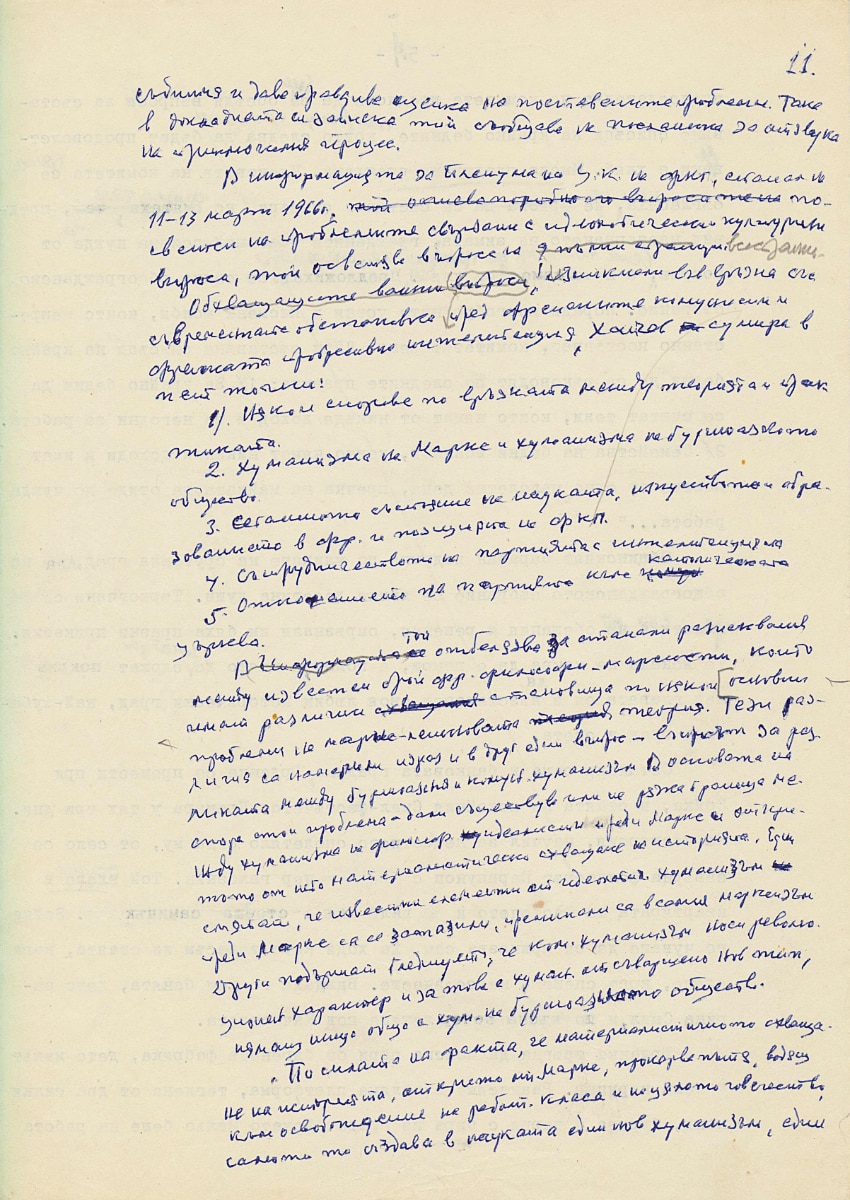 11.
събития и дава правдива оценка на поставените проблеми. Така
в докладната си записка той съобщава на посланика за отзвука
на приключилия процес.
В информацията за Пленума на Ц.К. на ФКП, станал на
11-13 март 1966г. той осветлява подробно въпроса по-
светен на проблемите свързани с идеологическия и културния
въпроса, той осветява въпроса за
Обхващащите важни въпроси, изникнали във връзка със
съвременната обстановка пред френските комунисти и
френската прогресивна интелигенция, сумира в
пет точки:
1). Някои спорове по връзката между теорията и прак
тиката.
2. Хуманизма на Маркс и хуманизма на буржоазното
общество.
3. Сегашното състояние на науката, изкуството и обра-
зованието в Фр. и позицията на ФКП.
4. Сътрудничеството на партията с интелигенцията
5. Отношението на партията към католическата
църква.
В Информацията той отбелязва за станали разисквания
между известен брой фр. философи-марксисти, които
имат различни схващания становища по някои основни
проблеми на маркс-ленинската теория теория. Тези раз-
личия са намерили израз и в друг един въпрос - въпросът за раз-
ликата между буржоазния и комун. хуманизъм. В основата на
спора стои проблема - дали съществува или не рязка граница ме-
жду хуманизма на философ. идеалисти преди Маркс и откри-
тото от него материалистическо схващане на историята. Едни
смятат, че известни елементи от идеалист. хуманизъм
преди Маркс са се запазили, преминали са в самия марксизъм
Други подържат гледището, че ком. хуманизъм носи револю-
ционен характер и за това е хуман. от съвършено нов тип,
нямащ нищо общо с хум. на буржоазното общество.
"По силата на факта, че материалистичното схваща-
не на историята, открито от Маркс, прокарва пътя, водещ
към освобождение на работ. класа и на цялото човечество,
самото то създава в науката един нов хуманизъм, един